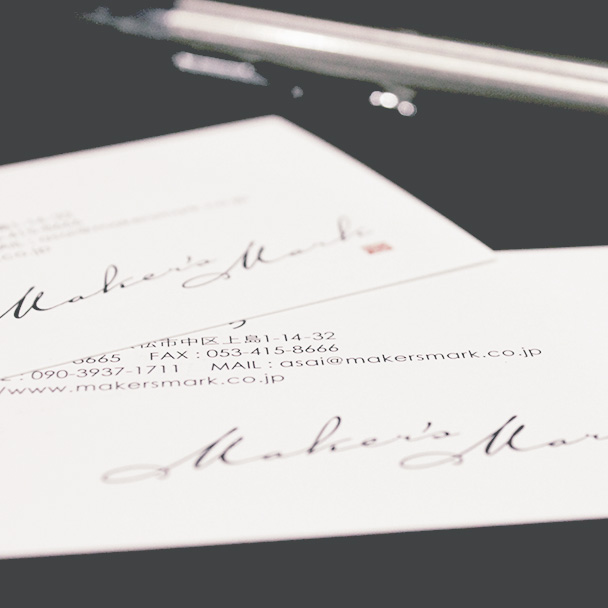 Maker's Mark
市中区上島1-14-32
8665 FAX : 053-415-8666
: 090-3937-1711 MAIL : asai@makersmark.co.jp
/www.makersmark.co.jp
Maker's Mar